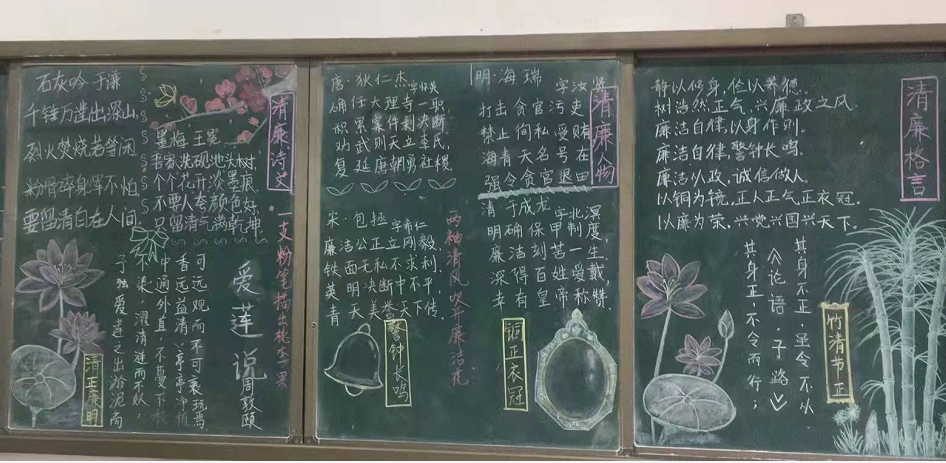 清廉诗选
石灰吟 于谦
千锤万凿出深山
烈火焚烧若等闲
粉骨碎身浑不怕
要留清白在人间
墨梅 王冕
吾家洗砚池头树,
个个花开淡墨痕
不要人夸颜色好
只留清气满乾坤
一支粉笔描出桃李三果
爱莲说
周敦颐
予独爱莲之出淤泥而
不染,濯清涟而不妖,
中通外直,不蔓不
香远益清,亭亭净植
可远观而不可亵玩焉
清正廉明
清廉人物
唐·狄仁杰 字怀英
确任大理寺一职
积累案件剩决断
劝武则天立
复延唐朝勇社稷
明·海瑞 字汝贤
打击贪官污吏
禁止徇私受贿
海青天名号在
强令贪官退田
宋·包拯 字希仁
廉洁公正立刚毅
铁面无私不
英明决断中
青天美誉天下传
清 于成龙 字北溟
明确保甲制度
廉洁刻苦一生
深得百姓爱戴
幸有皇帝称
两袖清风吹开廉洁花
警钟长鸣
铜正衣冠
清廉格言
静以修身,俭以养德。
树浩然正气,兴廉政之风。
廉洁自律,以身作则。
廉洁自律,警钟长鸣。
廉洁以政,诚信做人。
以铜为镜,正人正气正衣冠。
以廉为荣,兴党兴国兴天下。
其身正不令而行;
其身不正,虽令不从
《论语·子路》
竹清节正